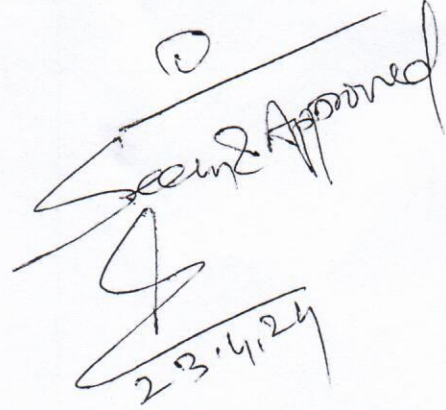 Seen & Approved
23.4.24